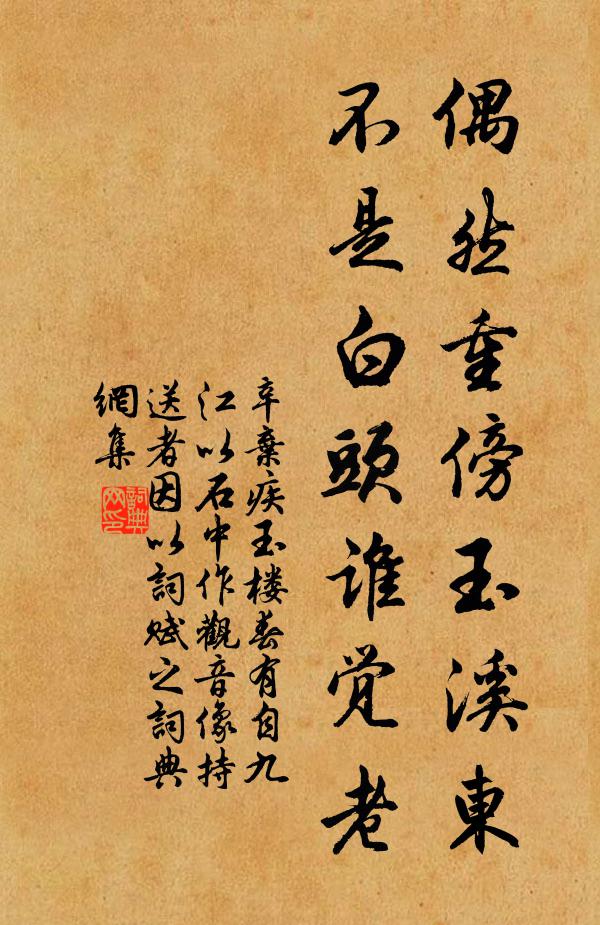 偶然重傍玉溪東
不是白頭谁覺老
辛棄疾玉楼春有自九
江以石中作觀音像持
送者因以詞赋之詞典
網集
詞典
网印